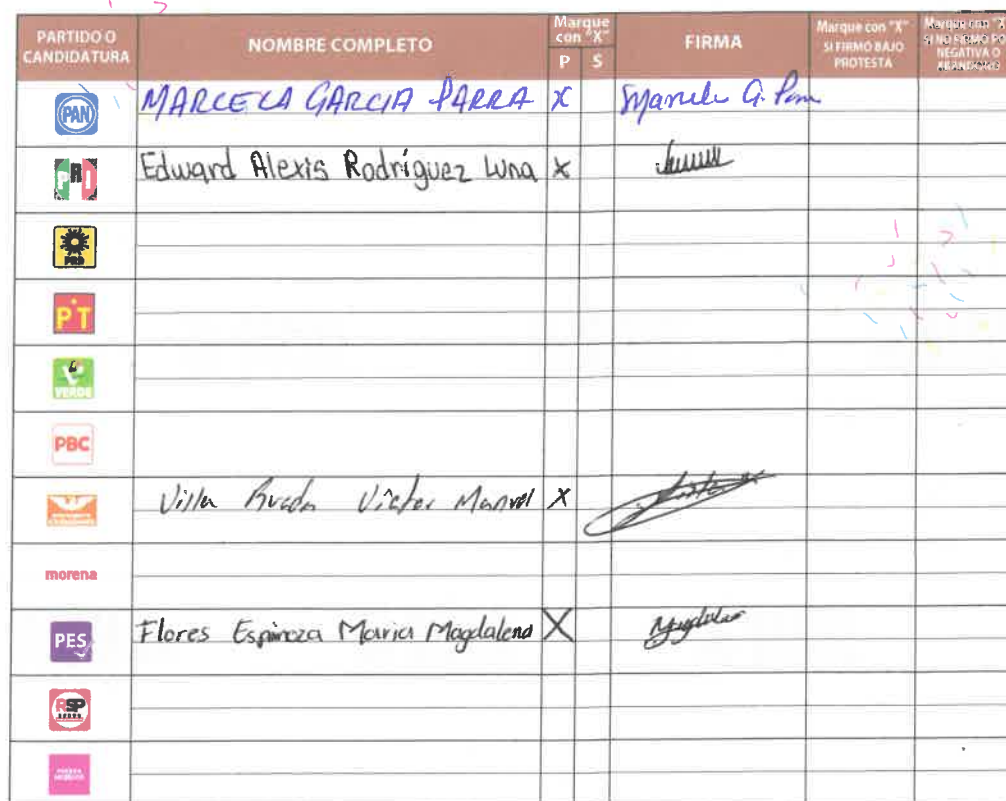 PARTIDO O CANDIDATURA
NOMBRE COMPLETO
Marque con "X"
P S
FIRMA
Marque con "X"
SI FIRMÓ BAJO
PROTESTA
Marque con "X"
SI NO FIRMÓ PO
NEGATIVA O
ABANDONO
PAN
MARCELA GARCIA PARRA X
PRI
Edward Alexis Rodríguez Luna X
PRD
PT
VERDE
PBC
Villa Victor Manuel X
morena
PES
Flores Espinoza Maria Magdalena X
RSP